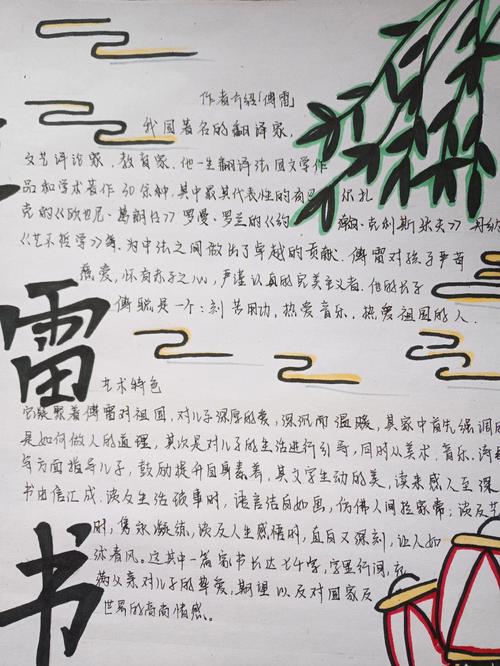 作者介绍「傅雷」
我国著名的翻译家,
文艺评论家、教育家。他一生翻译法国文学作
品和学术著作30余种,其中最具代表性的有 尔扎
克的《欧也尼·葛朗台》罗曼·罗兰的《约 ·克利斯朵夫》丹纳
《艺术哲学》等,为中法之间做出了卓越的贡献。傅雷对孩子严苛
慈爱,怀有赤子之心,严谨认真的完美主义者。他的长子
傅聪是一个:刻苦用功,热爱音乐,热爱祖国的人.
雷
艺术特色
它凝聚着傅雷对祖国,对儿子深厚的爱,深沉而温暖,其家中首先强调的
是如何做人的道理,其次是对儿子的生活进行引导,同时从美术、音乐、诗
等方面指导儿子,鼓励提升自身素养,其文字生动的美,读来感人至深
书由信汇成.谈及生活琐事时,语言洁白如画,仿佛人间拉家常;谈及艺
时,隽永凝练,谈及人生感悟时,直白又深刻,让人如
沐春风。这其中一篇家书长达七千字,字里行间,充
满父亲对儿子的挚爱,期望以及对国家及
世界的高尚情感。
书